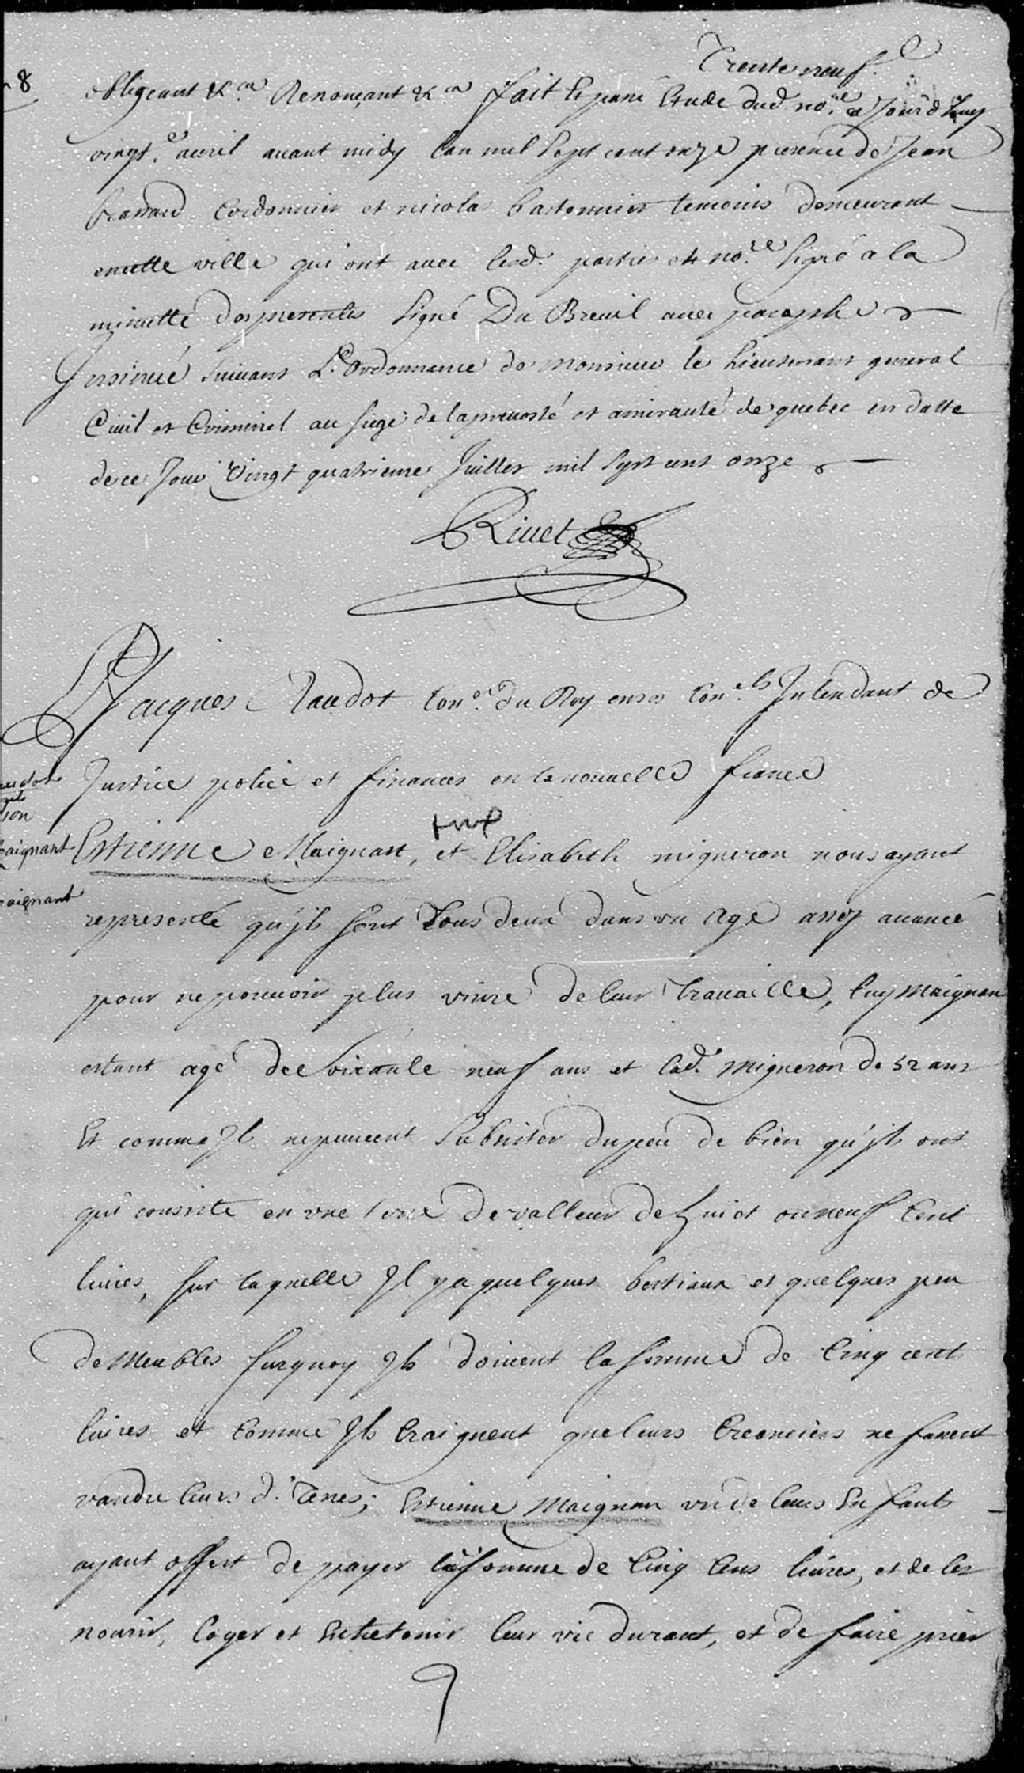 Trente neuf.e
8
obligeant &ca Renonçant &ca fait et passé Etude dud. nore. a Jourdhuy
vingt.e avril avant midy Lan mil sept cent onze presence de Jean
cordonnier et nicolas bastonnier temoins demeurant
en cette ville qui ont avec lesd. partie et nore. signé a la
minutte des presentes signé Du Breuil avec paraphe
Insinué suivant L'Ordonnance de monsieur le Lieutenant general
Civil et Criminel au siege de la prevosté et amirauté de quebec en datte
de ce Jour Vingt quatrieme Juillet mil sept cens onze
Rivet
Jacques Raudot Conser. du Roy en ses Conels Intendant de
Justice police et finances en la nouvelle france
Estienne Maignant, et Elisabeth migneron nous ayant
representé qu'jls sont Tous deux dans un age assez avancé
pour ne pouvoir plus vivre de leur Travaille, luy Maignan
estant agé de Soixante neuf ans et lad. Migneron de 52 ans
Et comme Jls ne peuvent subsister du peu de bien qu'jls ont
qui consiste en une terre de valleur de huict ou neuf Cent
livres, sur laquelle Jl y a quelques bestiaux et quelques peu
de Meubles surquoy Jls doivent la somme de Cinq cents
livres et Comme Jls Craignent que leurs Creanciers ne fassent
vandre leurs d. Terres; Estienne Maignan un de leurs Enfants
ayant offert de payer lad. somme de Cinq Cens livres, et de les
nourir, loger et Entretenir leur vie durant, et de faire prier